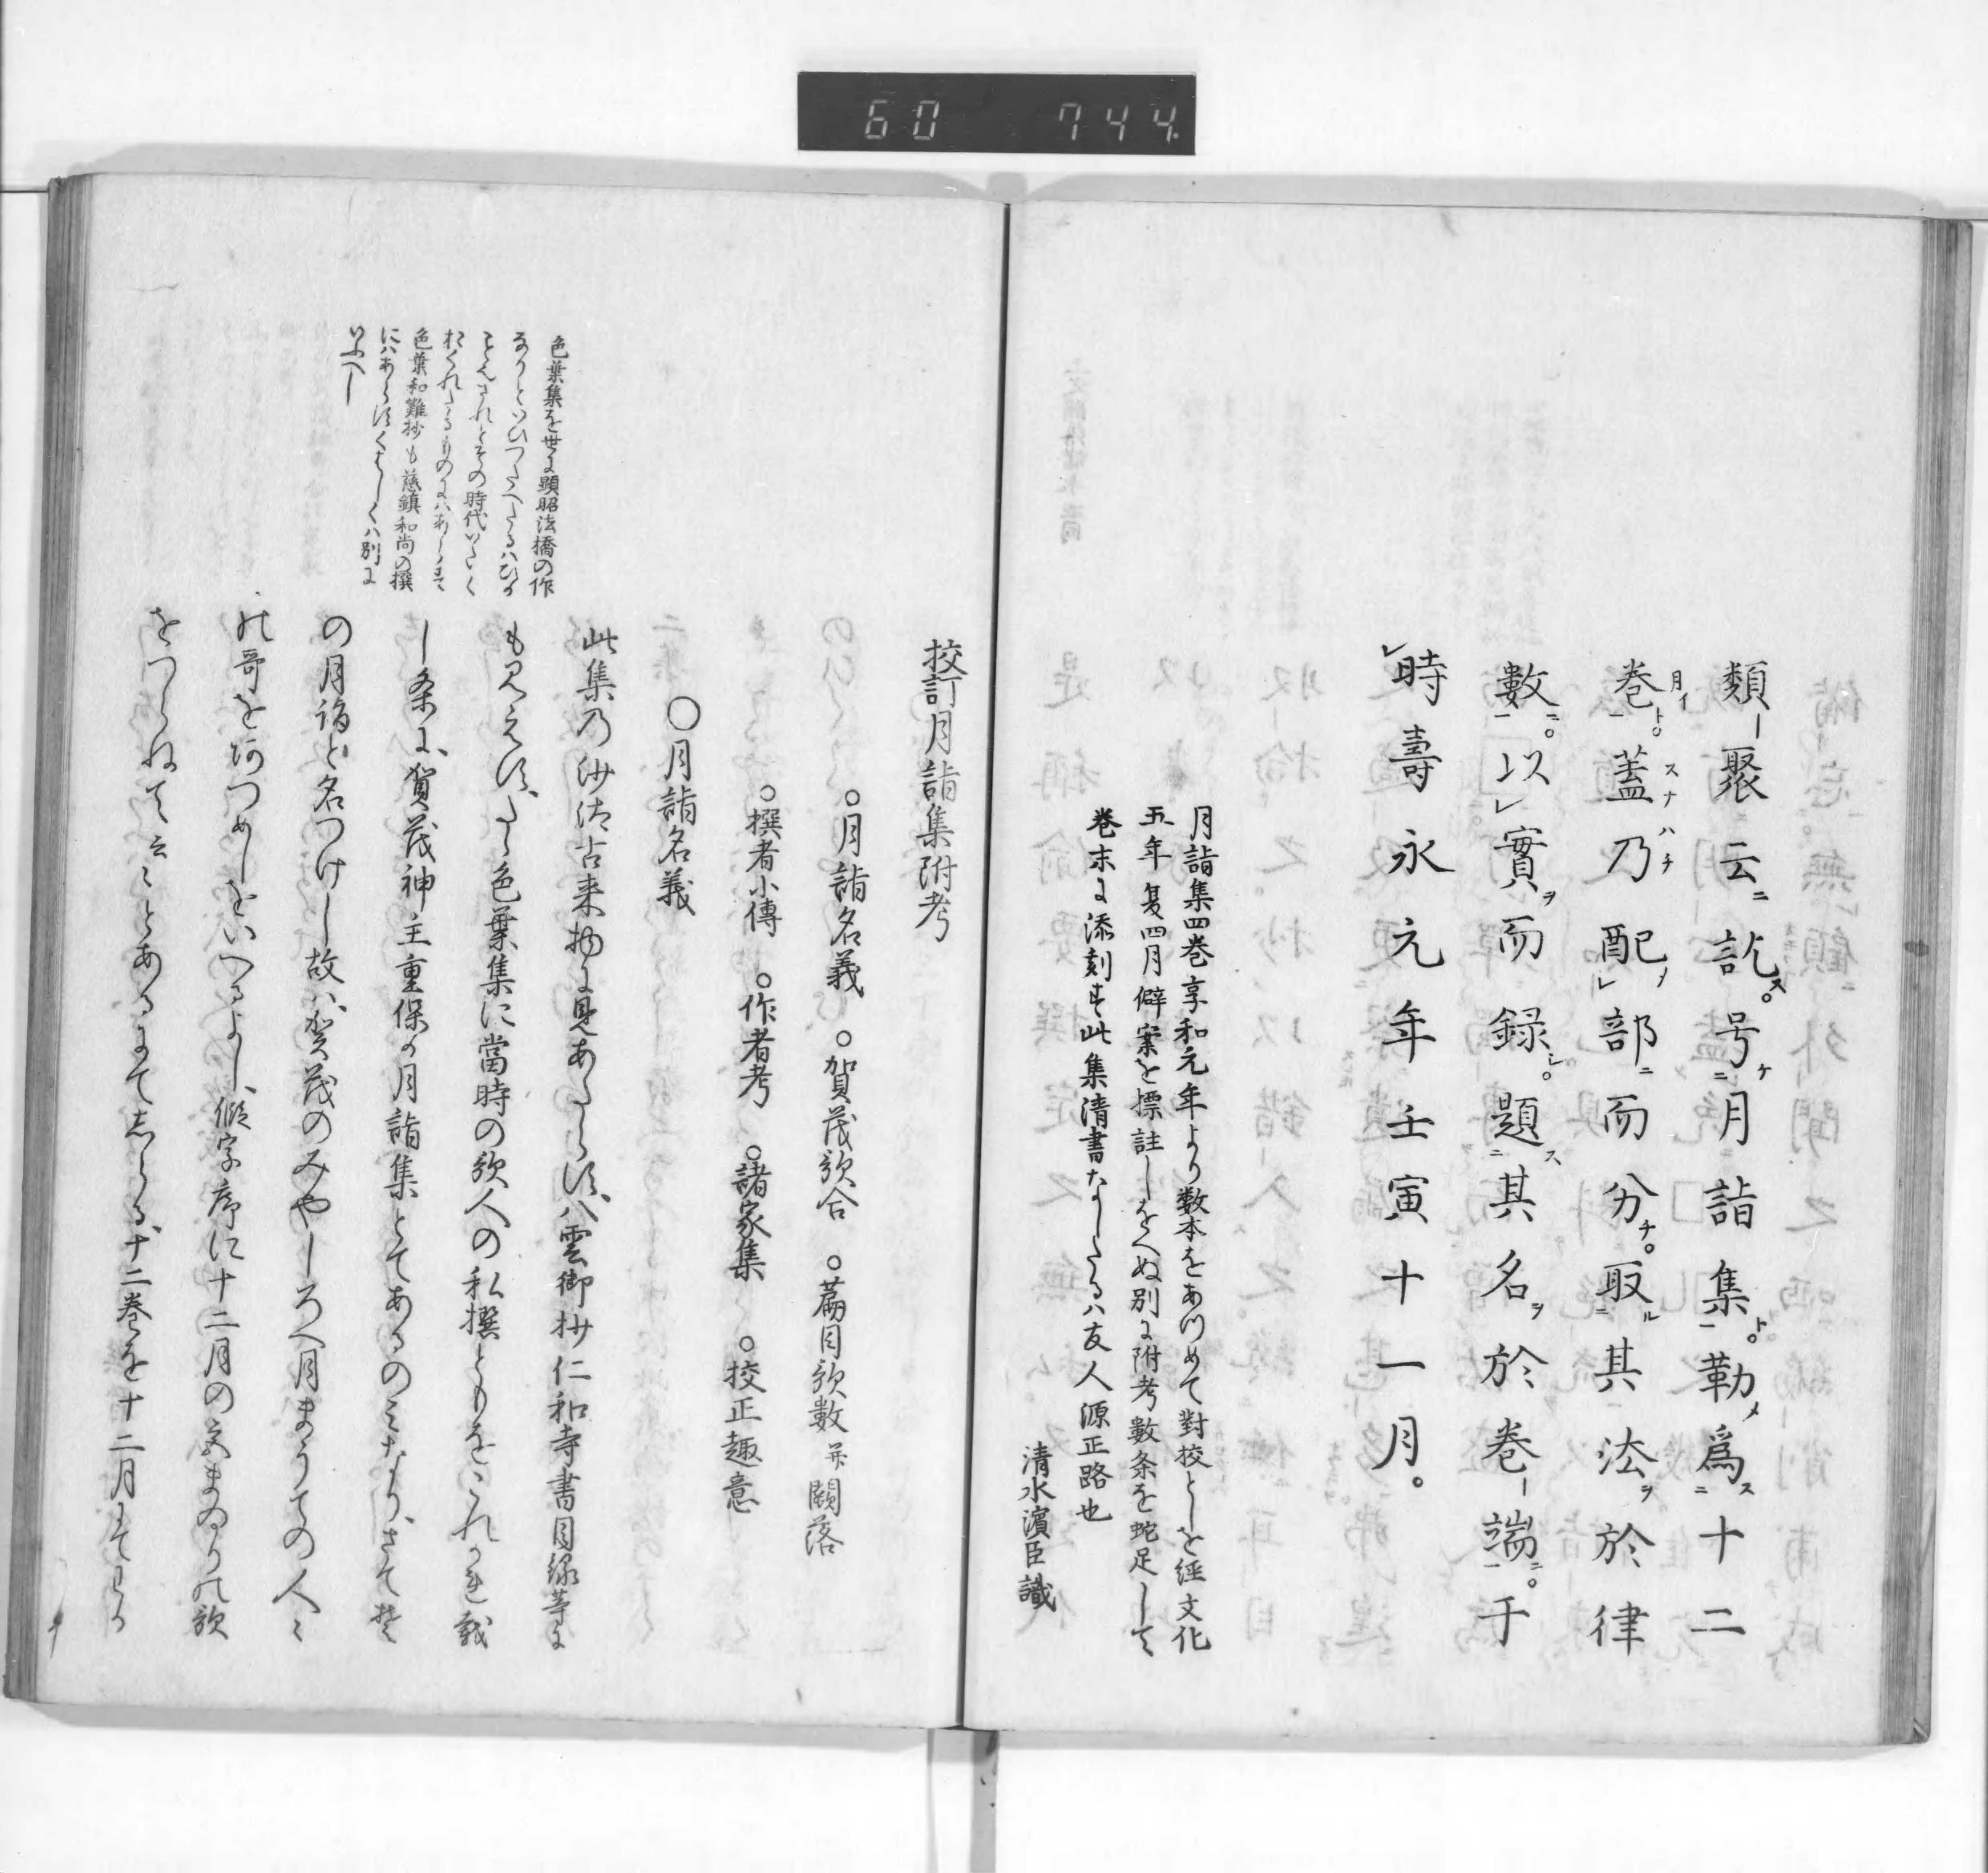 60 744
類聚云訖号月詣集勒爲十二
巻蓋乃配部而分取其法於律
數以實而録題其名於巻端于
時壽永元年壬寅十一月。
月詣集四巻享和元年より数本をあつめて對校しを經文化
五年夏四月僻案を標註しをへぬ別に附考數条を蛇足して
巻末に添刻す此集清書なしたるハ友人源正路也
清水濱臣識
挍訂月詣集附考
○月詣名義 ○賀茂歌合 ○萹目歌數并闕落
○撰者小傳 ○作者考 ○諸家集 ○挍正趣意
○月詣名義
此集乃沙汰古来物に見あたらす八雲御抄仁和寺書目録等に
も見えすたゝ色葉集に當時の歌人の私撰ともをこれかれ載
し条に賀茂神主重保か月詣集とてあるのみなりさて其
の月詣と名つけし故ハ賀茂のみやしろへ月まうての人々
の哥をあつめしをいへるよし假字序に十二月の宮まゐりの歌
をつらねて云々とあるにて志らる十二巻を十二月にてわか
色葉集を世に顕昭法橋の作
なりといひつたへたるハひか
ことなれとその時代いたく
おくれたるものにハあらす
色葉和難抄も慈鎮和尚の撰
にハあらすくはしくハ別に
いふへし